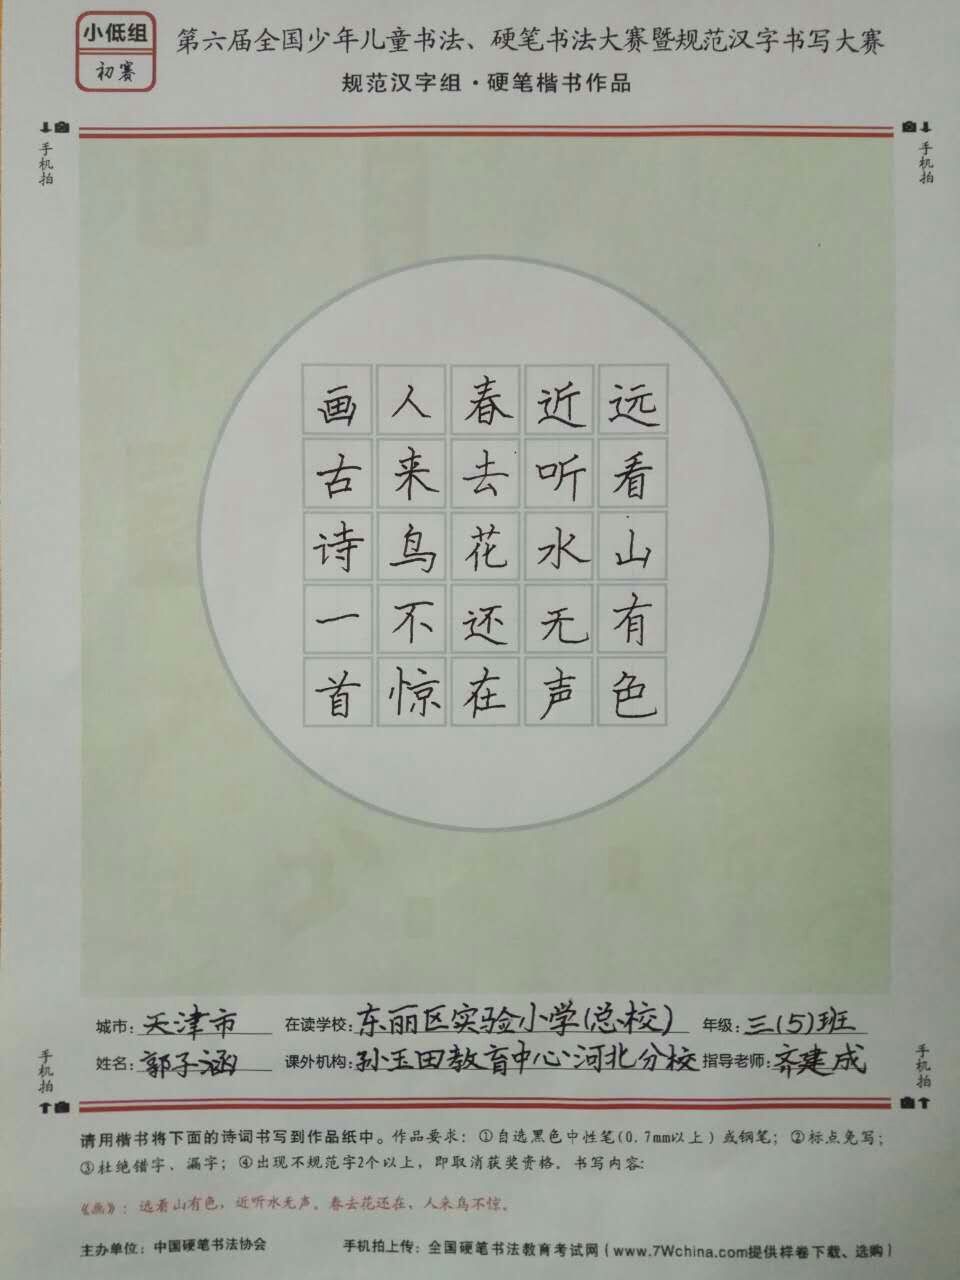 小低组
初赛
第六届全国少年儿童书法、硬笔书法大赛暨规范汉字书写大赛
规范汉字组·硬笔楷书作品
手机拍
手机拍
远看山有色
近听水无声
春去花还在
人来鸟不惊
画古诗一首
城市:天津市 在读学校:东丽区实验小学(总校) 年级:三(5)班
姓名:郭子涵 课外机构:孙玉田教育中心·河北分校 指导老师:齐建成
手机拍
手机拍
请用楷书将下面的诗词书写到作品纸中。作品要求：①自选黑色中性笔(0.7mm以上)或钢笔；②标点免写；
③杜绝错字、漏字；④出现不规范字2个以上，即取消获奖资格。书写内容:
《画》：远看山有色，近听水无声。春去花还在，人来鸟不惊。
主办单位：中国硬笔书法协会 手机拍上传：全国硬笔书法教育考试网（www.7Wchina.com提供样卷下载、选购）